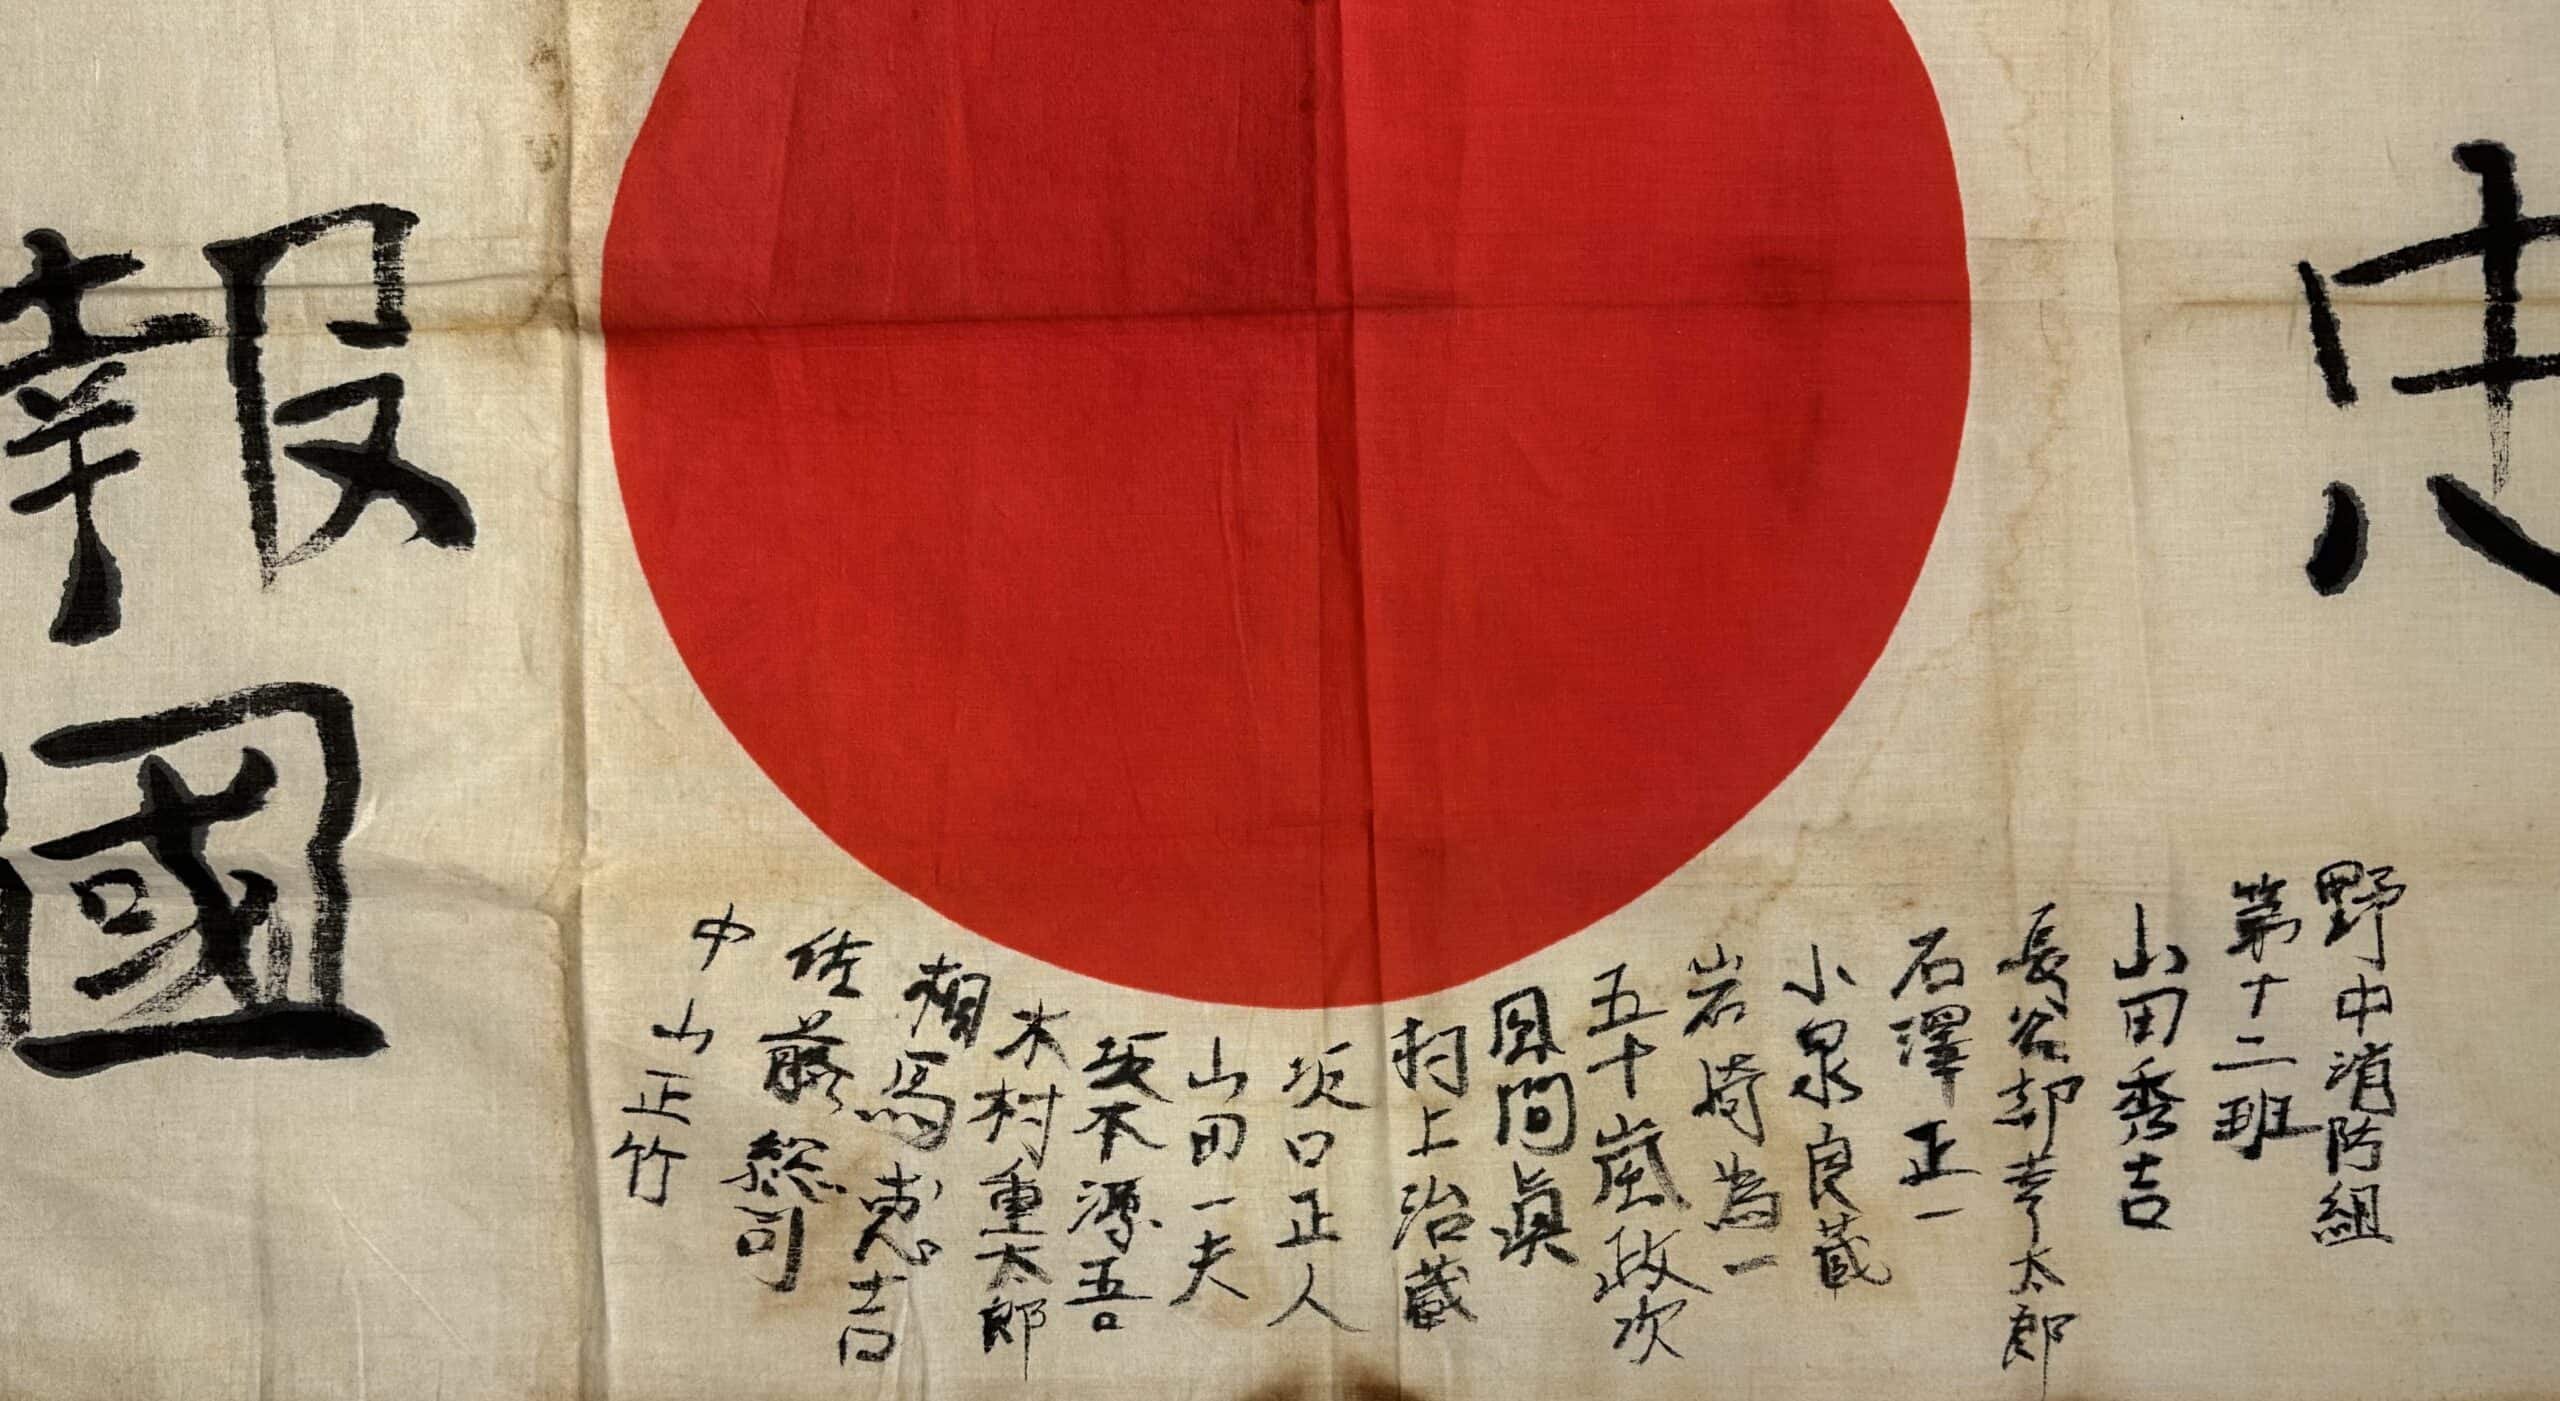 忠
野中消防組
第十二班
山田秀吉
長谷部孝太郎
石澤正一
小泉良蔵
岩崎為一
五十嵐政次
風間眞
村上治蔵
坂口正人
山田一夫
坂本源吾
木村重太郎
相馬恵吉
佐藤総司
中山正竹
報國